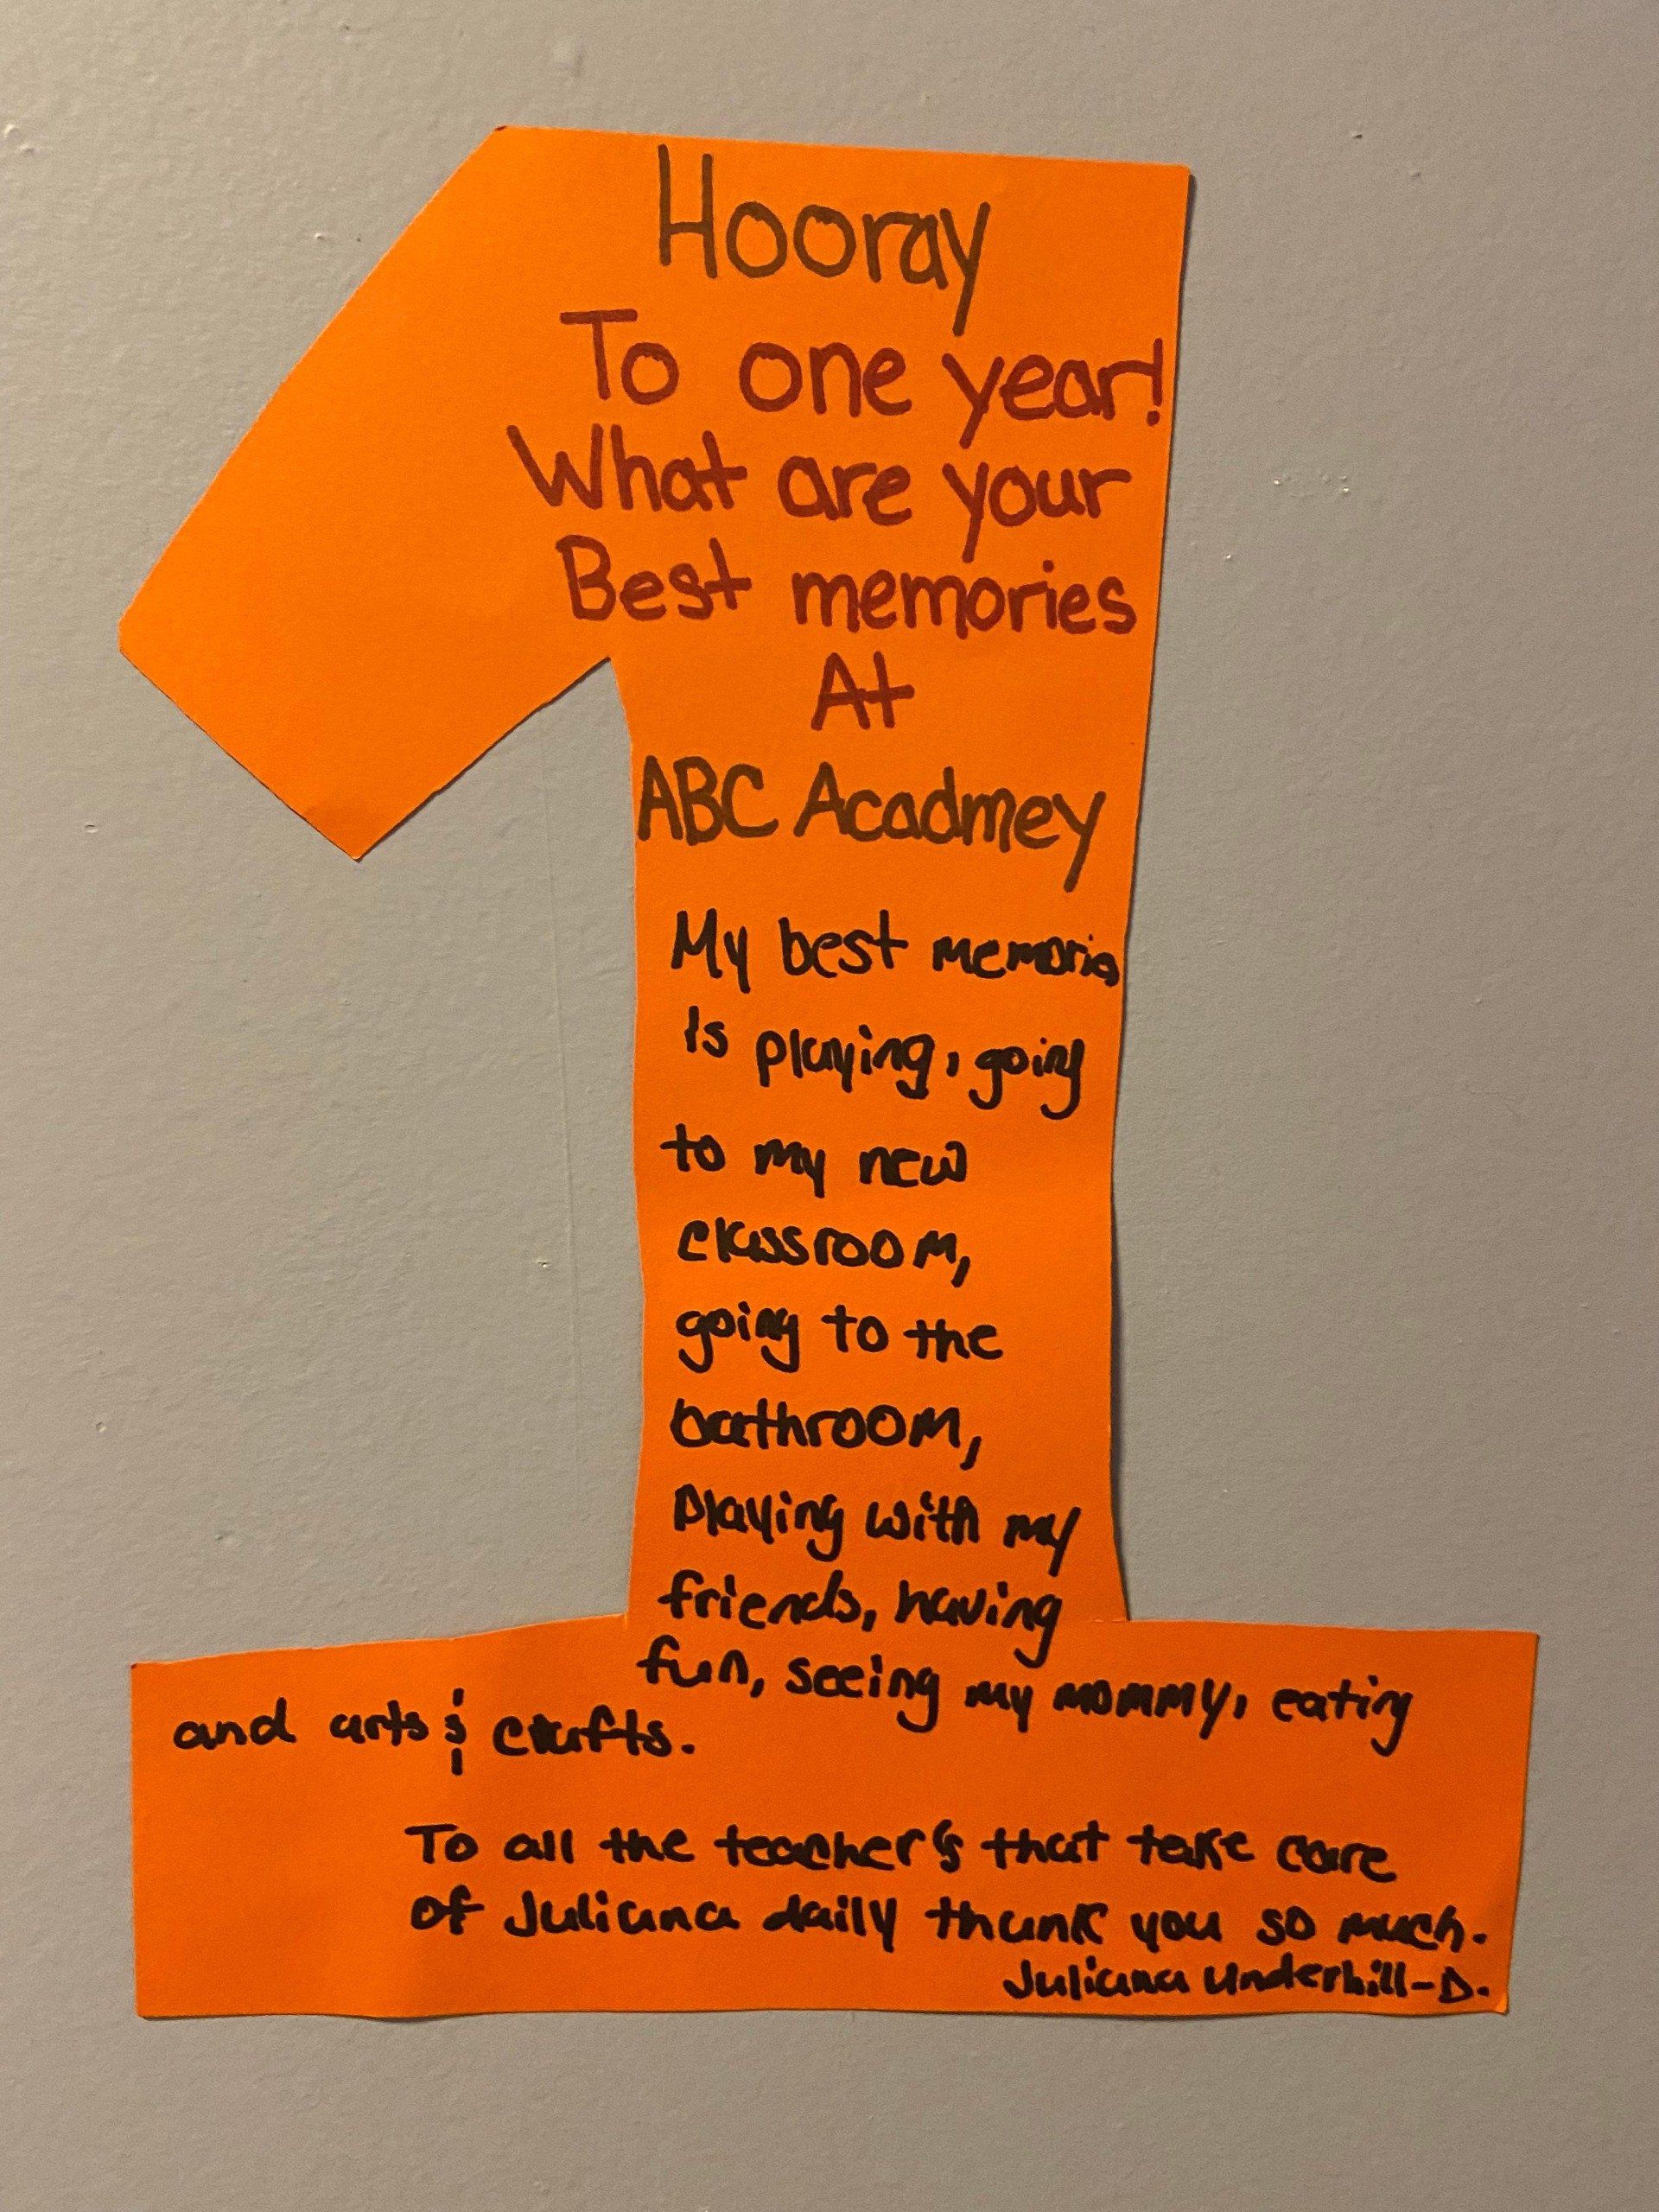 Hooray
To one year!
What are your
Best memories
At
ABC Acadmey
My best memories
is playing, going
to my new
classroom,
going to the
bathroom,
playing with my
friends, having
fun, seeing my mommy, eating
and arts & crafts.
To all the teacher's that take care
of Juliana daily thank you so much.
Juliana Underhill-D.